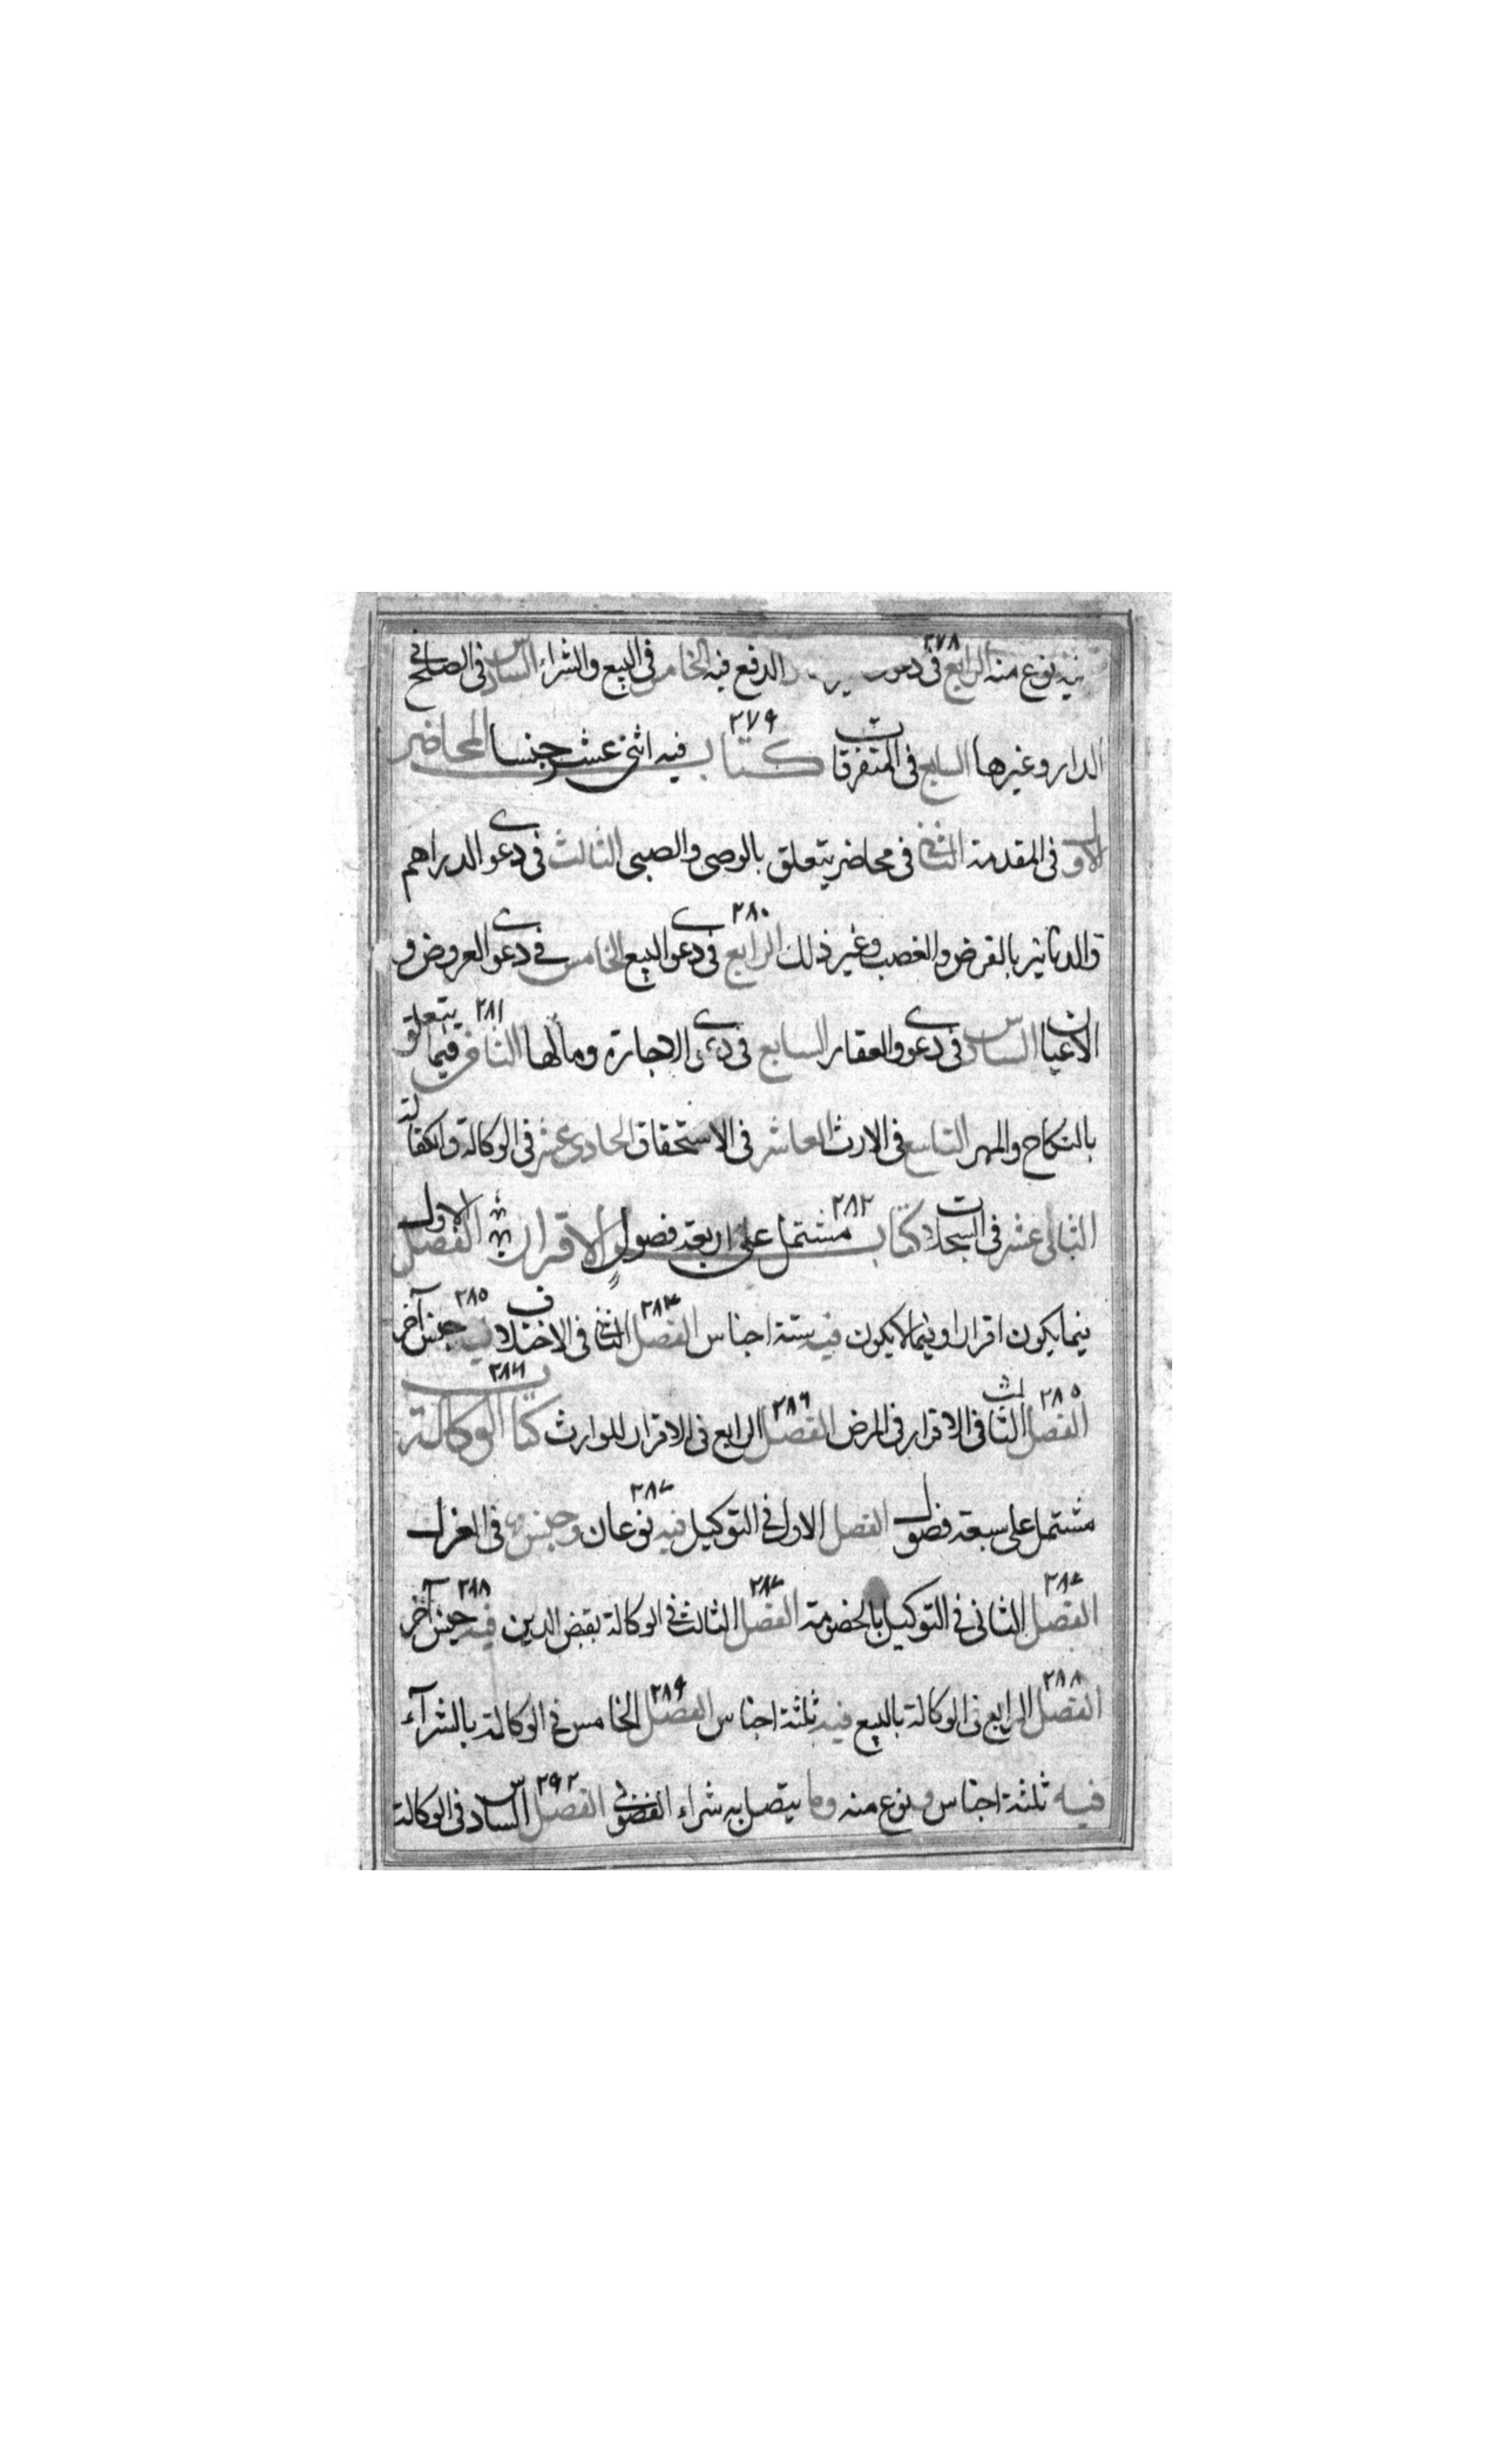 فيه نوع منه الرابع ٢٧٨ فى الدفع فيه الخامس فى البيع والشراء السادس فى الصلح فى
الدار وغيرها السابع فى المتفرقات ٢٧٩ كتاب فيه اثنى عشر جنسا المحاضر
الاول فى المقدمة الثانى فى محاضر يتعلق بالوصى والصبى الثالث فى دعوى الدراهم
والدنانير بالقرض والغصب وغير ذلك ٢٨٠ الرابع فى دعوى البيع الخامس فى دعوى العروض و
الاعيان السادس فى دعوى العقار السابع فى دعوى الاجارة ومالها ٢٨١ الثامن فيما يتعلق
بالنكاح والمهر التاسع فى الارث العاشر فى الاستحقاق الحادى عشر فى الوكالة والكفالة
الثانى عشر فى السجلات ٢٨٢ كتاب مشتمل على اربعة فصول الاقرار الفصل الاول
فيما يكون اقرارا وفيما لا يكون فيه ستة اجناس ٢٨٣ الفصل الثانى فى الاختلاف ٢٨٥ فيه جنس آخر
٢٨٥ الفصل الثالث فى الاقرار فى المرض ٢٨٦ الفصل الرابع فى الاقرار للوارث ٢٨٦ كتاب الوكالة
مشتمل على سبعة فصول الفصل الاول فى التوكيل ٢٨٧ فيه نوعان وجنس فى العزل
٢٨٧ الفصل الثانى فى التوكيل بالخصومة ٢٨٧ الفصل الثالث فى الوكالة بقبض الدين ٢٨٨ فيه جنس آخر
٢٨٨ الفصل الرابع فى الوكالة بالبيع فيه ثلثة اجناس ٢٨٩ الفصل الخامس فى الوكالة بالشرآء
فيه ثلثة اجناس ونوع منه وما يتصل به شراء الفضولى ٢٩٢ الفصل السادس فى الوكالة